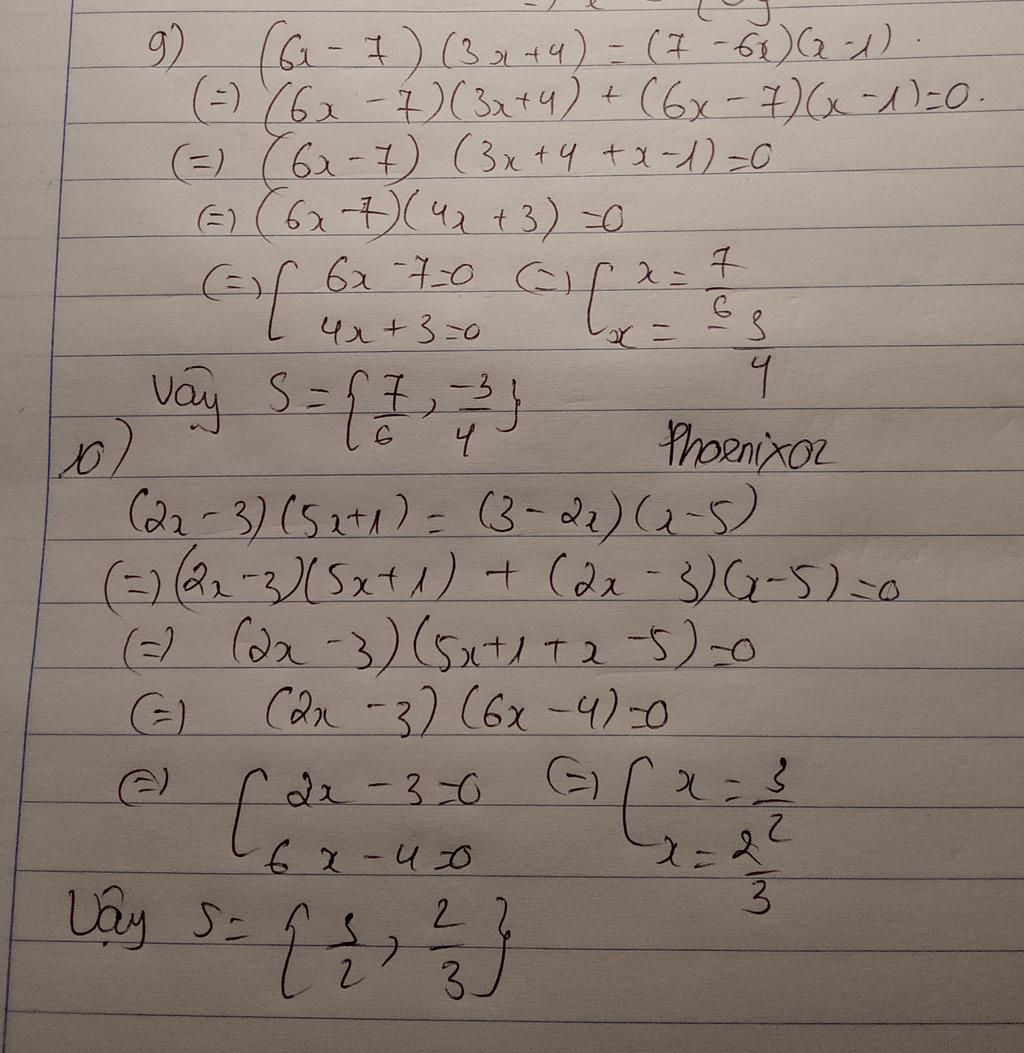 9) (6x - 7)(3x+4) = (7 - 6x)(x - 1).
(=) (6x - 7)(3x+4) + (6x - 7)(x - 1)=0.
(=) (6x - 7) (3x+4 +x-1)=0
(=) (6x - 7)(4x + 3) =0
(=) [ 6x - 7=0 (=) [ x = 7/6
4x + 3 =0 x = -3/4
Vậy S = {7/6, -3/4}
10) Phoenixoz
(2x - 3)(5x+1) = (3 - 2x)(x-5)
(=) (2x - 3)(5x+1) + (2x - 3)(x-5)=0
(=) (2x - 3)(5x+1 + x - 5)=0
(=) (2x - 3)(6x - 4)=0
(=) [ 2x - 3=0 (=) [ x = 3/2
6x - 4=0 x = 2/3
Vậy S= {3/2, 2/3}